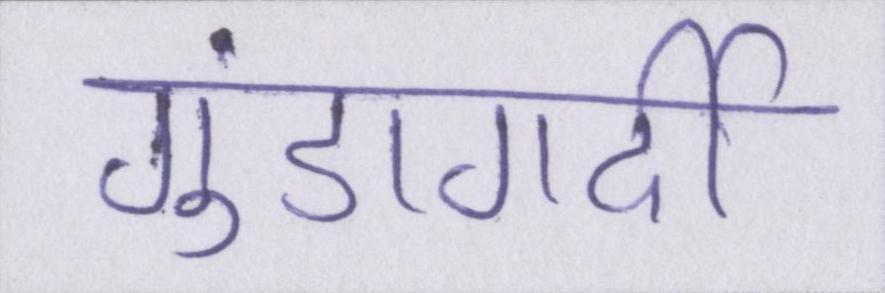 गुंडागर्दी